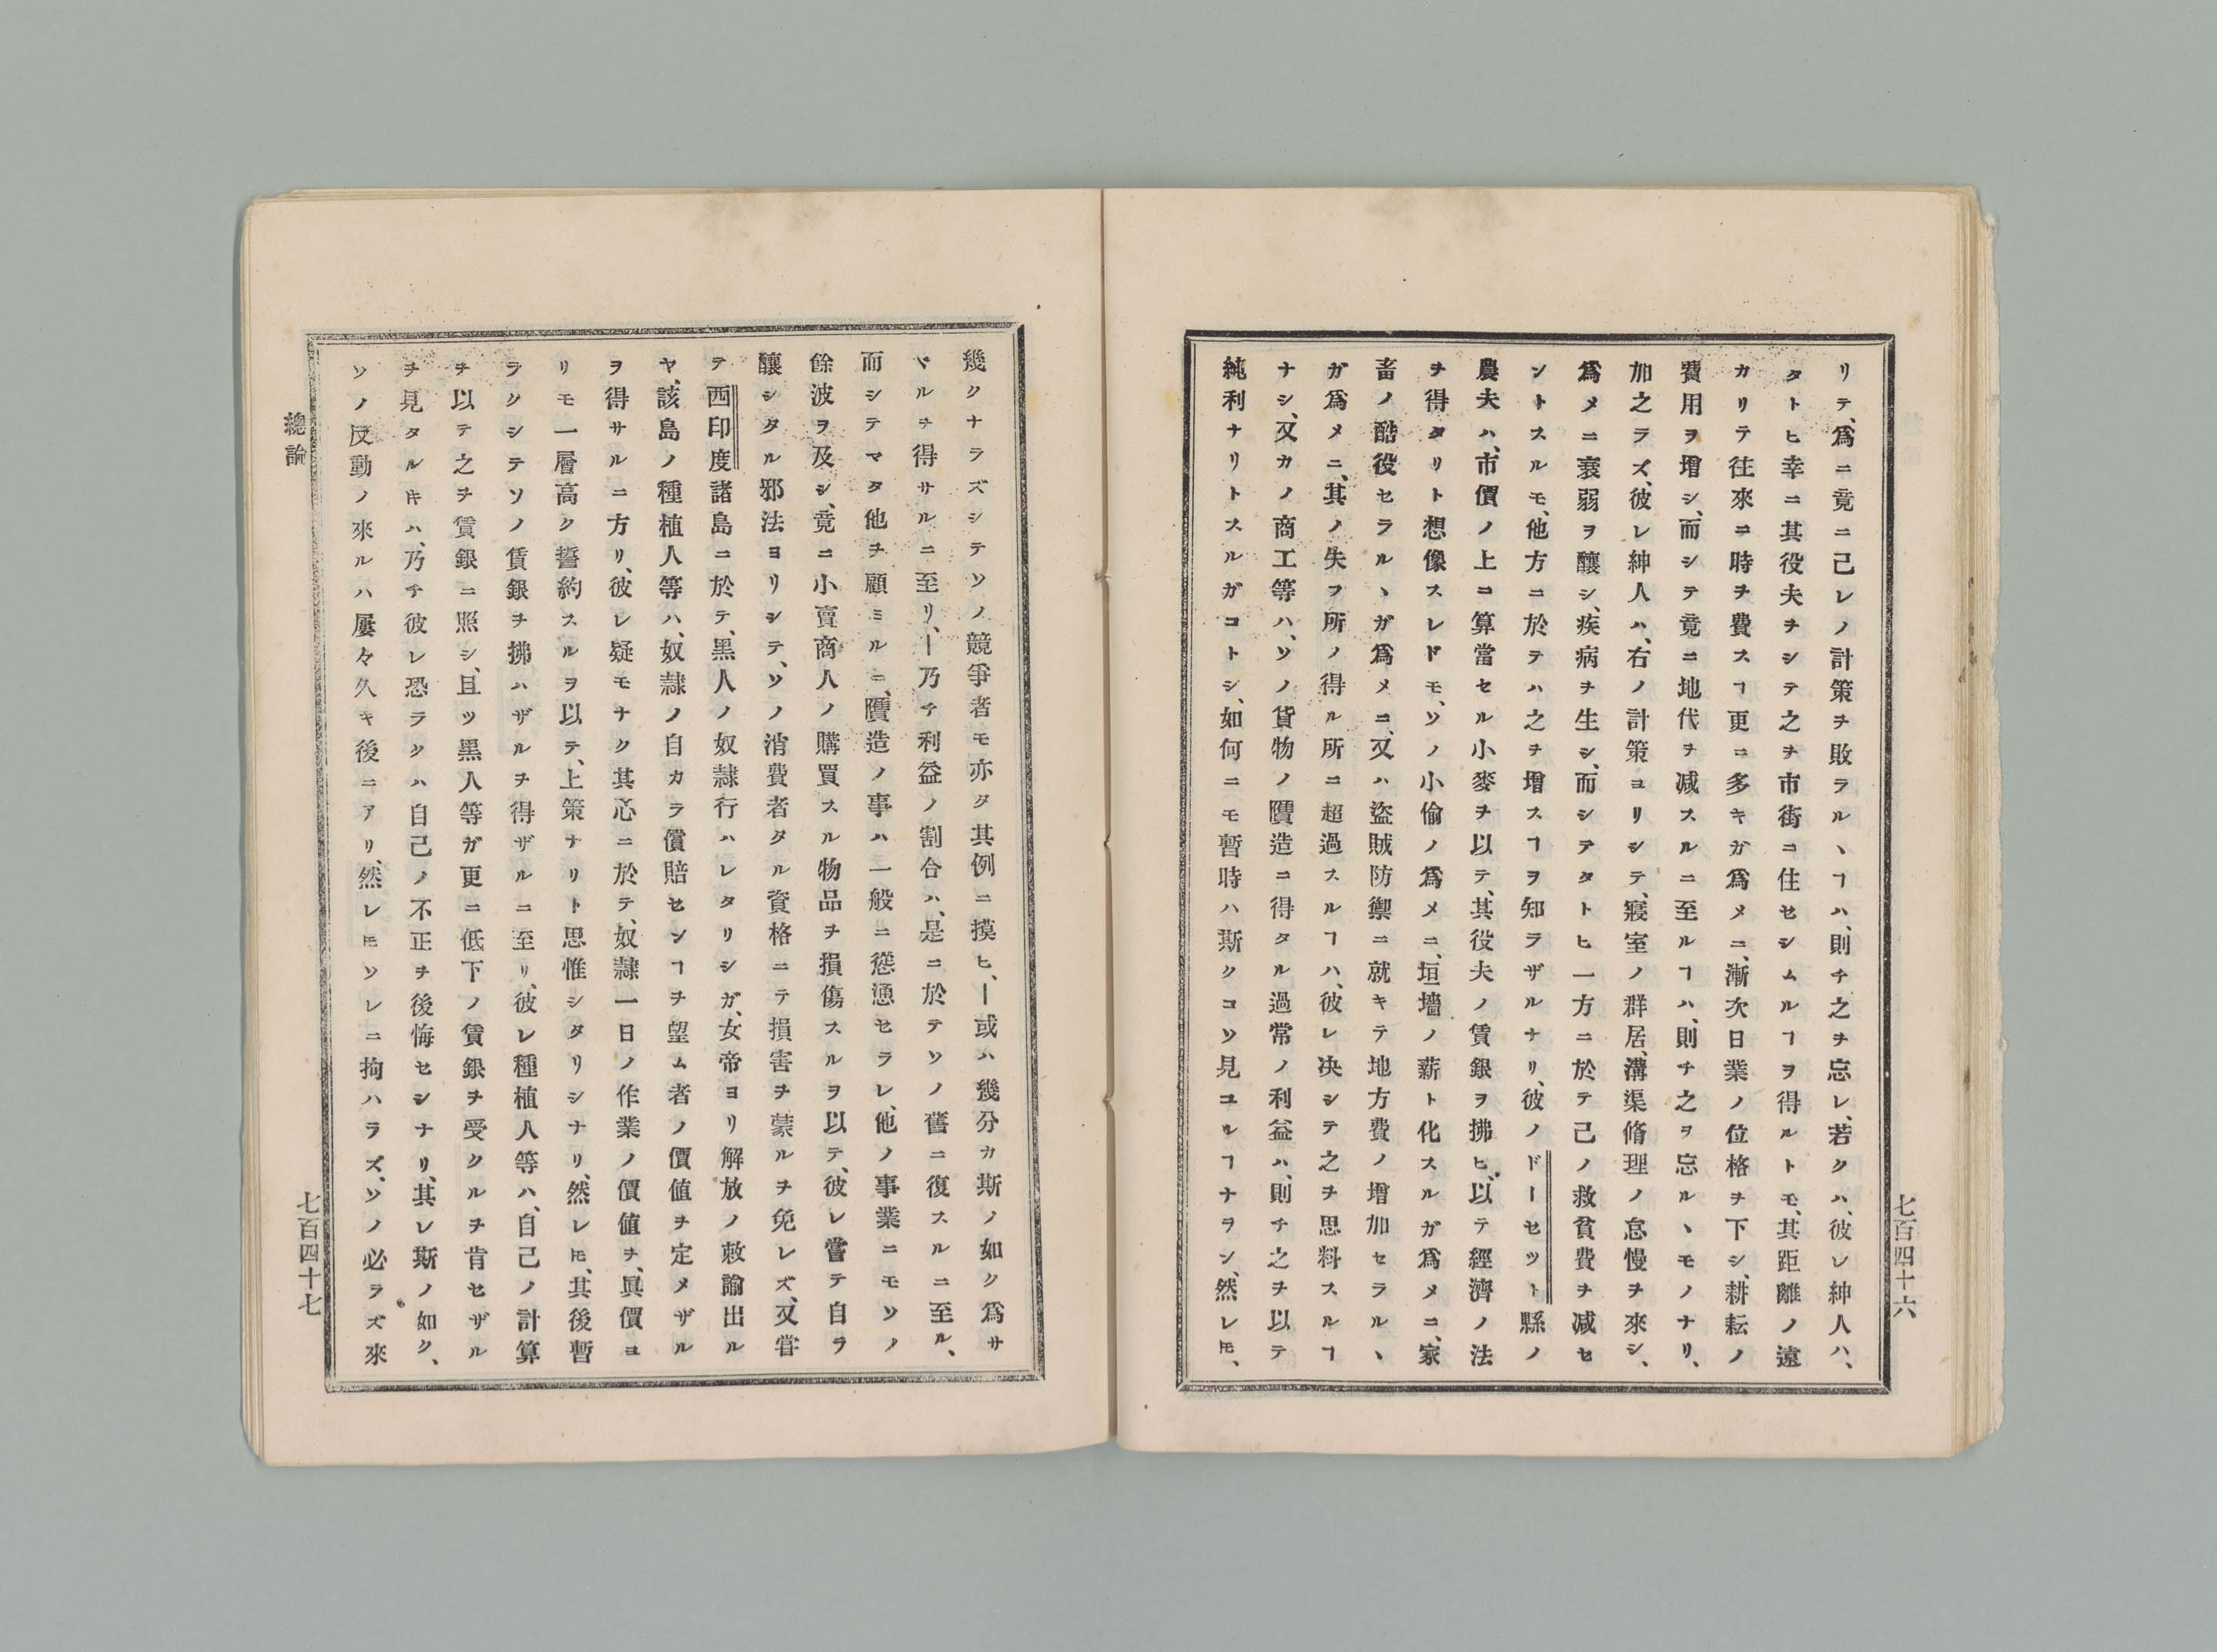 リテ、爲ニ竟ニ己レノ計策ヲ敗ラルヽヿハ、則チ之ヲ忘レ、若クハ、彼レ紳人ハ、
タトヒ幸ニ其役夫ヲシテ之ヲ市街ニ住セシムルヿヲ得ルトモ、其距離ノ遠
カリテ往來ニ時ヲ費スヿ更ニ多キガ爲メニ、漸次日業ノ位格ヲ下シ、耕耘ノ
費用ヲ增シ、而シテ竟ニ地代ヲ减スルニ至ルヿハ、則チ之ヲ忘ルヽモノナリ、
加之ラズ、彼レ紳人ハ、右ノ計策ヨリシテ、寢室ノ群居、溝渠脩理ノ怠慢ヲ來シ、
爲メニ衰弱ヲ釀シ、疾病ヲ生シ、而シテタトヒ一方ニ於テ己ノ救貧費ヲ减セ
ントスルモ、他方ニ於テハ之ヲ增スヿヲ知ラザルナリ、彼ノドーセツト縣ノ
農夫ハ、市價ノ上ニ算當セル小麥ヲ以テ、其役夫ノ賃銀ヲ拂ヒ、以テ經濟ノ法
ヲ得タリト想像スレドモ、ソノ小偷ノ爲メニ、垣墻ノ薪ト化スルガ爲メニ、家
畜ノ酷役セラルヽガ爲メニ、又ハ盜賊防禦ニ就キテ地方費ノ增加セラルヽ
ガ爲メニ、其ノ失フ所ノ得ル所ニ超過スルヿハ、彼レ决シテ之ヲ思料スルヿ
ナシ、又カノ商工等ハ、ソノ貨物ノ贋造ニ得タル過常ノ利益ハ、則チ之ヲ以テ
純利ナリトスルガコトシ、如何ニモ暫時ハ斯クコソ見ユルヿナラン、然レ𪜈、
七百四十六
幾クナラズシテソノ競爭者モ亦タ其例ニ摸ヒ、ー或ハ幾分カ斯ノ如ク爲サ
ヾルヲ得サルニ至リ、ー乃チ利益ノ割合ハ、是ニ於テソノ舊ニ復スルニ至ル、
而シテマタ他ヲ顧ミルニ、贋造ノ事ハ一般ニ慫慂セラレ、他ノ事業ニモソノ
餘波ヲ及シ、竟ニ小賣商人ノ購買スル物品ヲ損傷スルヲ以テ、彼レ嘗テ自ラ
釀シタル邪法ヨリシテ、ソノ消費者タル資格ニテ損害ヲ蒙ルヲ免レズ、又甞
テ西印度諸島ニ於テ、黑人ノ奴隷行ハレタリシガ、女帝ヨリ解放ノ敕諭出ル
ヤ、該島ノ種植人等ハ、奴隷ノ自カラ償賠センヿヲ望ム者ノ價値ヲ定メザル
ヲ得サルニ方リ、彼レ疑モナク其心ニ於テ、奴隷一日ノ作業ノ價値ヲ、眞價ヨ
リモ一層高ク誓約スルヲ以テ、上策ナリト思惟シタリシナリ、然レ𪜈、其後暫
ラクシテソノ賃銀ヲ拂ハザルヲ得ザルニ至リ、彼レ種植人等ハ、自己ノ計算
ヲ以テ之ヲ賃銀ニ照シ、且ツ黑人等ガ更ニ低下ノ賃銀ヲ受クルヲ肯セザル
ヲ見タルキハ、乃チ彼レ恐ラクハ自己ノ不正ヲ後悔セシナリ、其レ斯ノ如ク、
ソノ反動ノ來ルハ屢々久キ後ニアリ、然レ𪜈ソレニ拘ハラズ、ソノ必ラズ來
總論
七百四十七